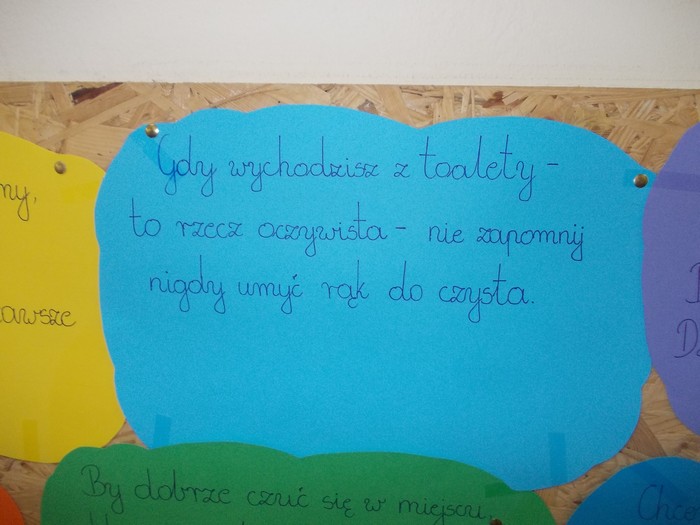 ny,
awsze
Gdy wychodzisz z toalety -
to rzecz oczywista - nie zapomnij
nigdy umyć rąk do czysta.
By dobrze czuć się w miejscu,
Chce